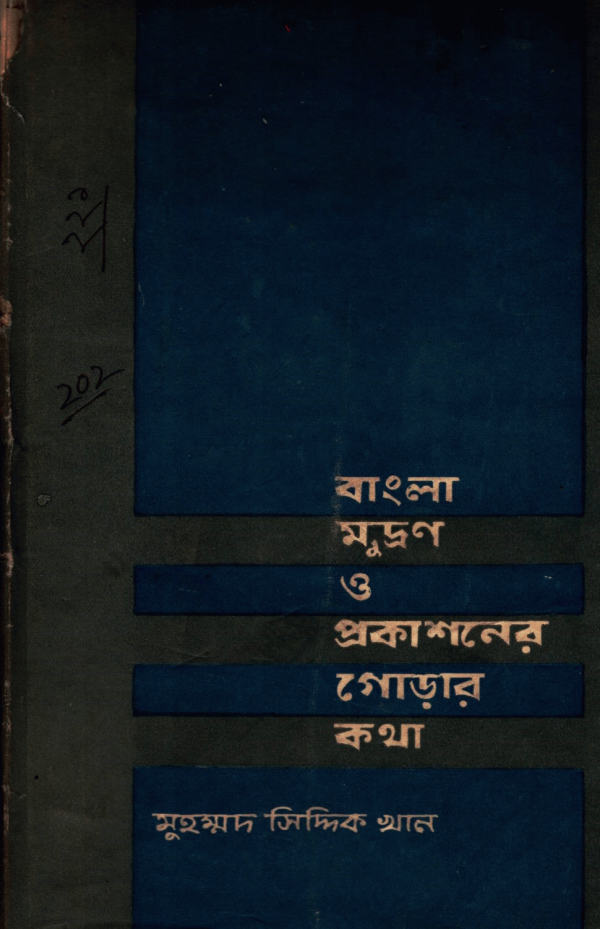 ২২৯
202
বাংলা
মুদ্রণ
ও
প্রকাশনের
গোড়ার
কথা
মুহম্মদ সিদ্দিক খান